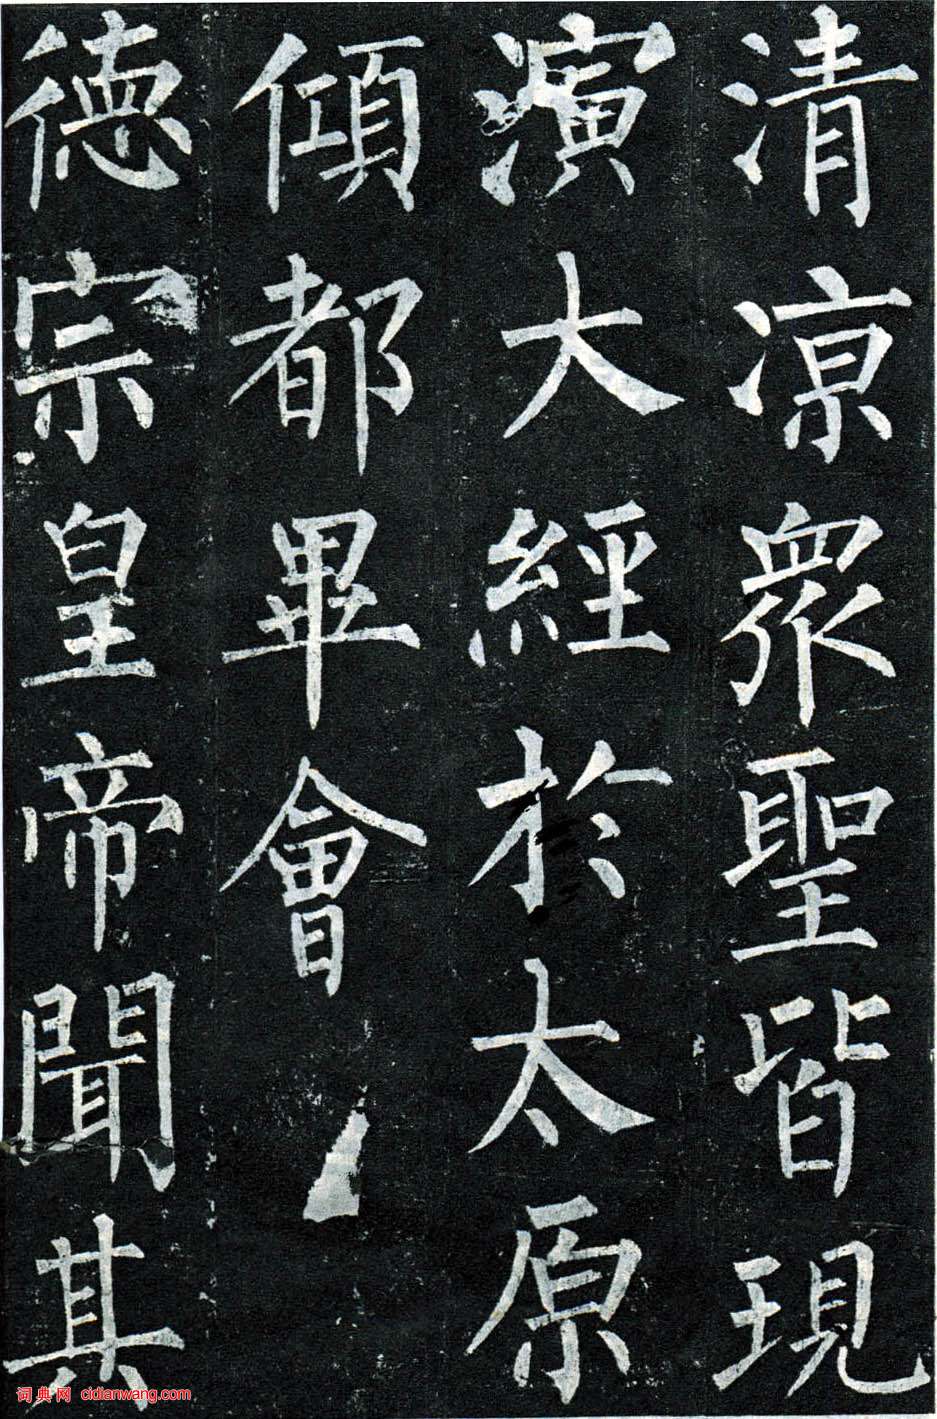 清涼眾聖皆現
演大經於太原
傾都畢會
德宗皇帝聞其
词典网 cidianwang.com